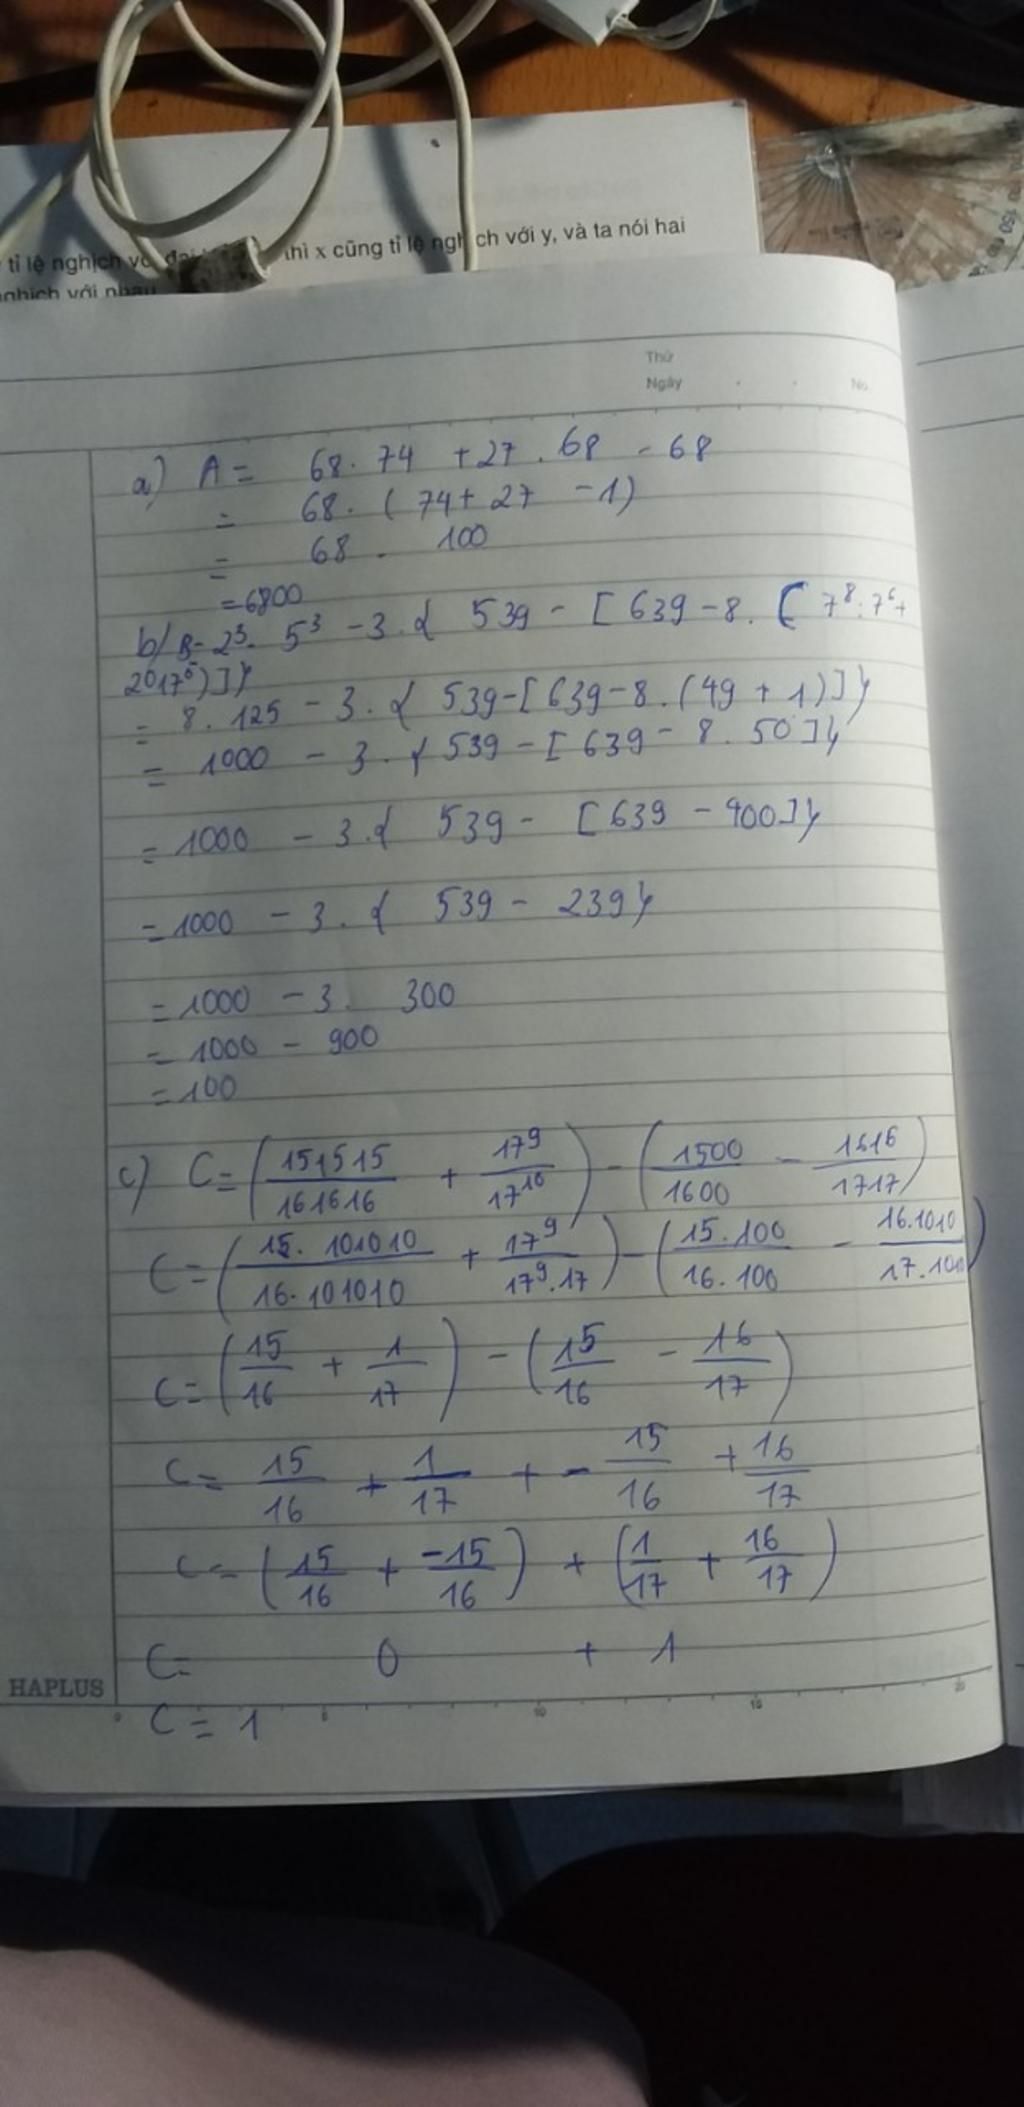 tỉ lệ nghịch thì x cũng tỉ lệ nghịch với y, và ta nói hai
nghịch với nhau
Thứ
Ngày No.
a) A = 68 . 74 + 27 . 68 - 68
= 68 . ( 74 + 27 - 1)
= 68 . 100
= 6800
b) B = 2³ . 5³ - 3 . { 539 - [ 639 - 8 . ( 7⁸ : 7⁶ +
2017⁰)]}
= 8 . 125 - 3 . { 539 - [ 639 - 8 . (49 + 1)]}
= 1000 - 3 . { 539 - [ 639 - 8 . 50 ]}
= 1000 - 3 . { 539 - [ 639 - 400]}
= 1000 - 3 . { 539 - 239}
= 1000 - 3 . 300
= 1000 - 900
= 100
c) C = (151515/161616 + 17⁹/17¹⁰) - (1500/1600 - 1616/1717)
C = (15 . 101010/16 . 101010 + 17⁹/17⁹ . 17) - (15 . 100/16 . 100 - 16 . 1010/17 . 1010)
C = (15/16 + 1/17) - (15/16 - 16/17)
C = 15/16 + 1/17 + - 15/16 + 16/17
C = (15/16 + -15/16) + (1/17 + 16/17)
C = 0 + 1
HAPLUS
C = 1
0 5 10 15 20